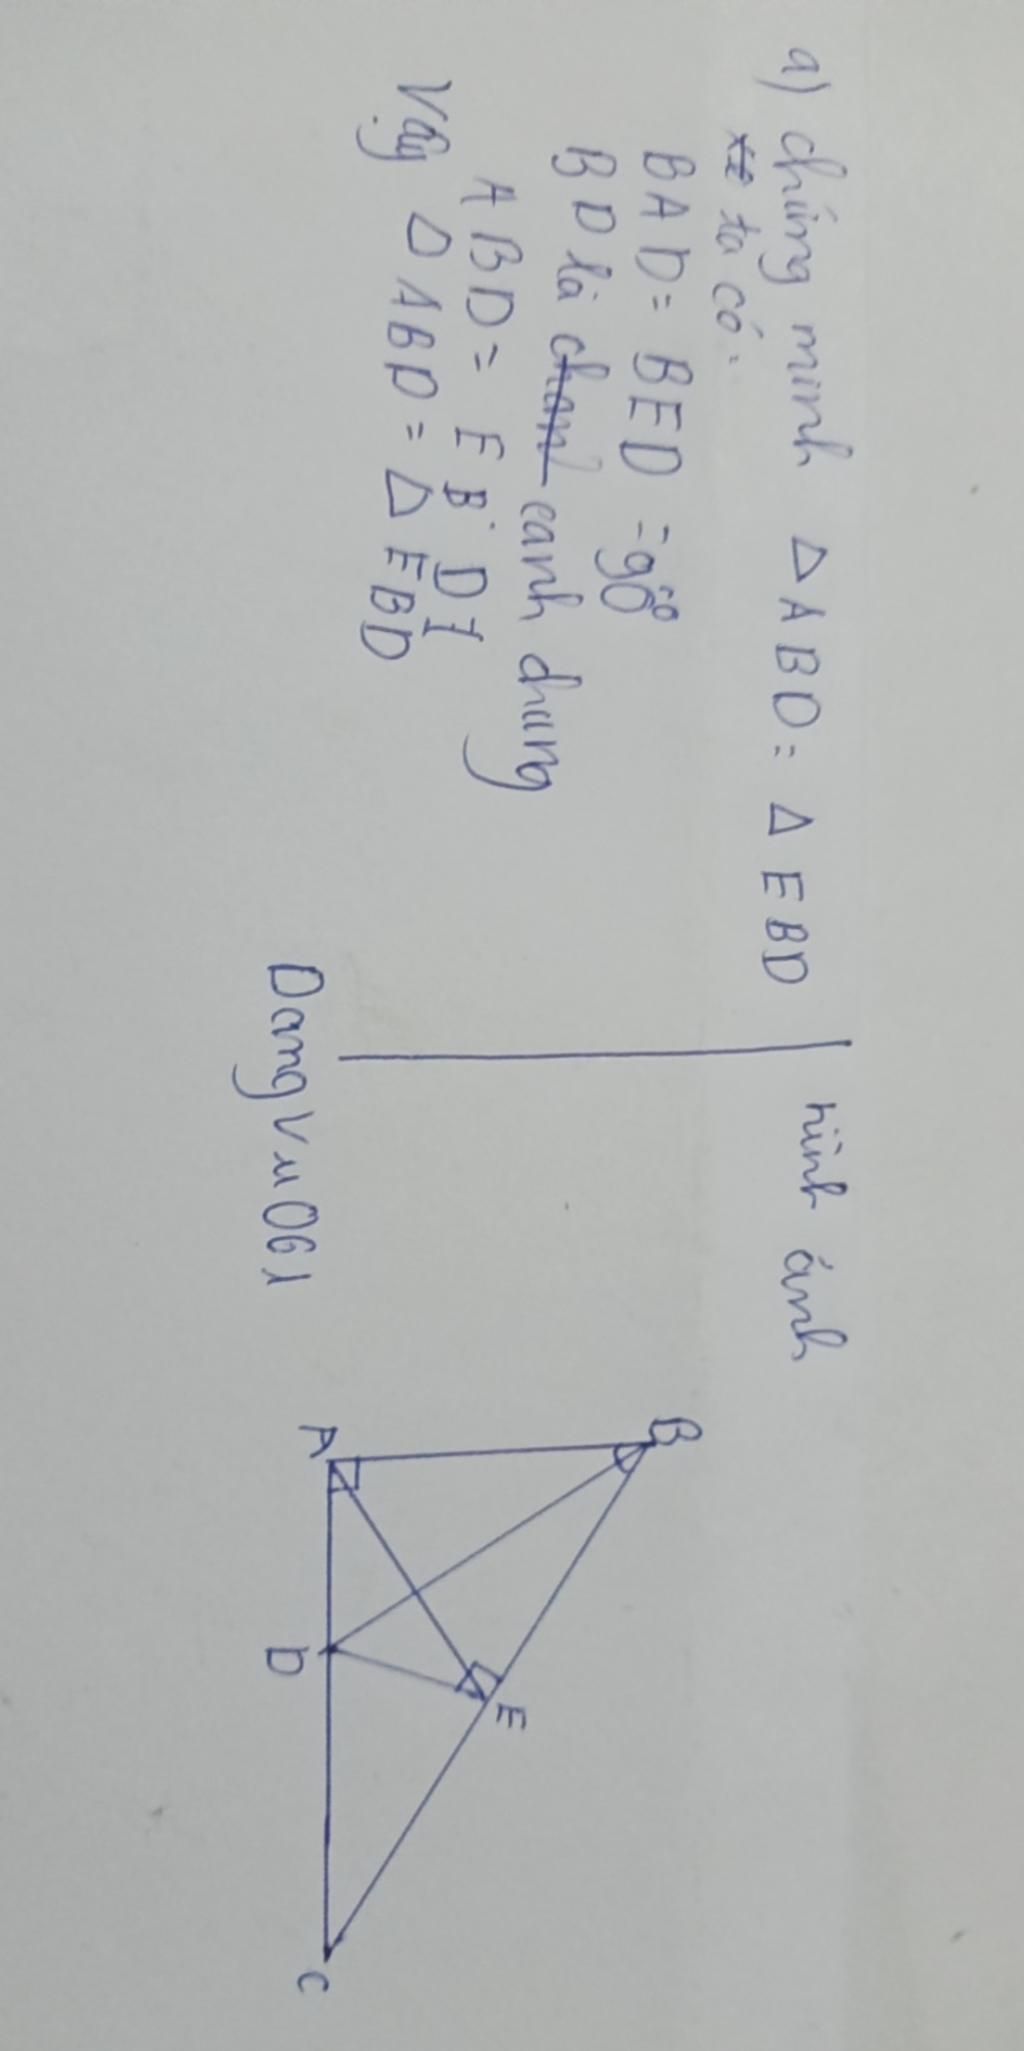 a) chứng minh Δ ABD = Δ EBD
ta có:
BAD = BED = 90°
BD là cạnh chung
ABD = EBD
Vậy Δ ABD = Δ EBD
hình ảnh
DangVu061
B
A
E
D
C